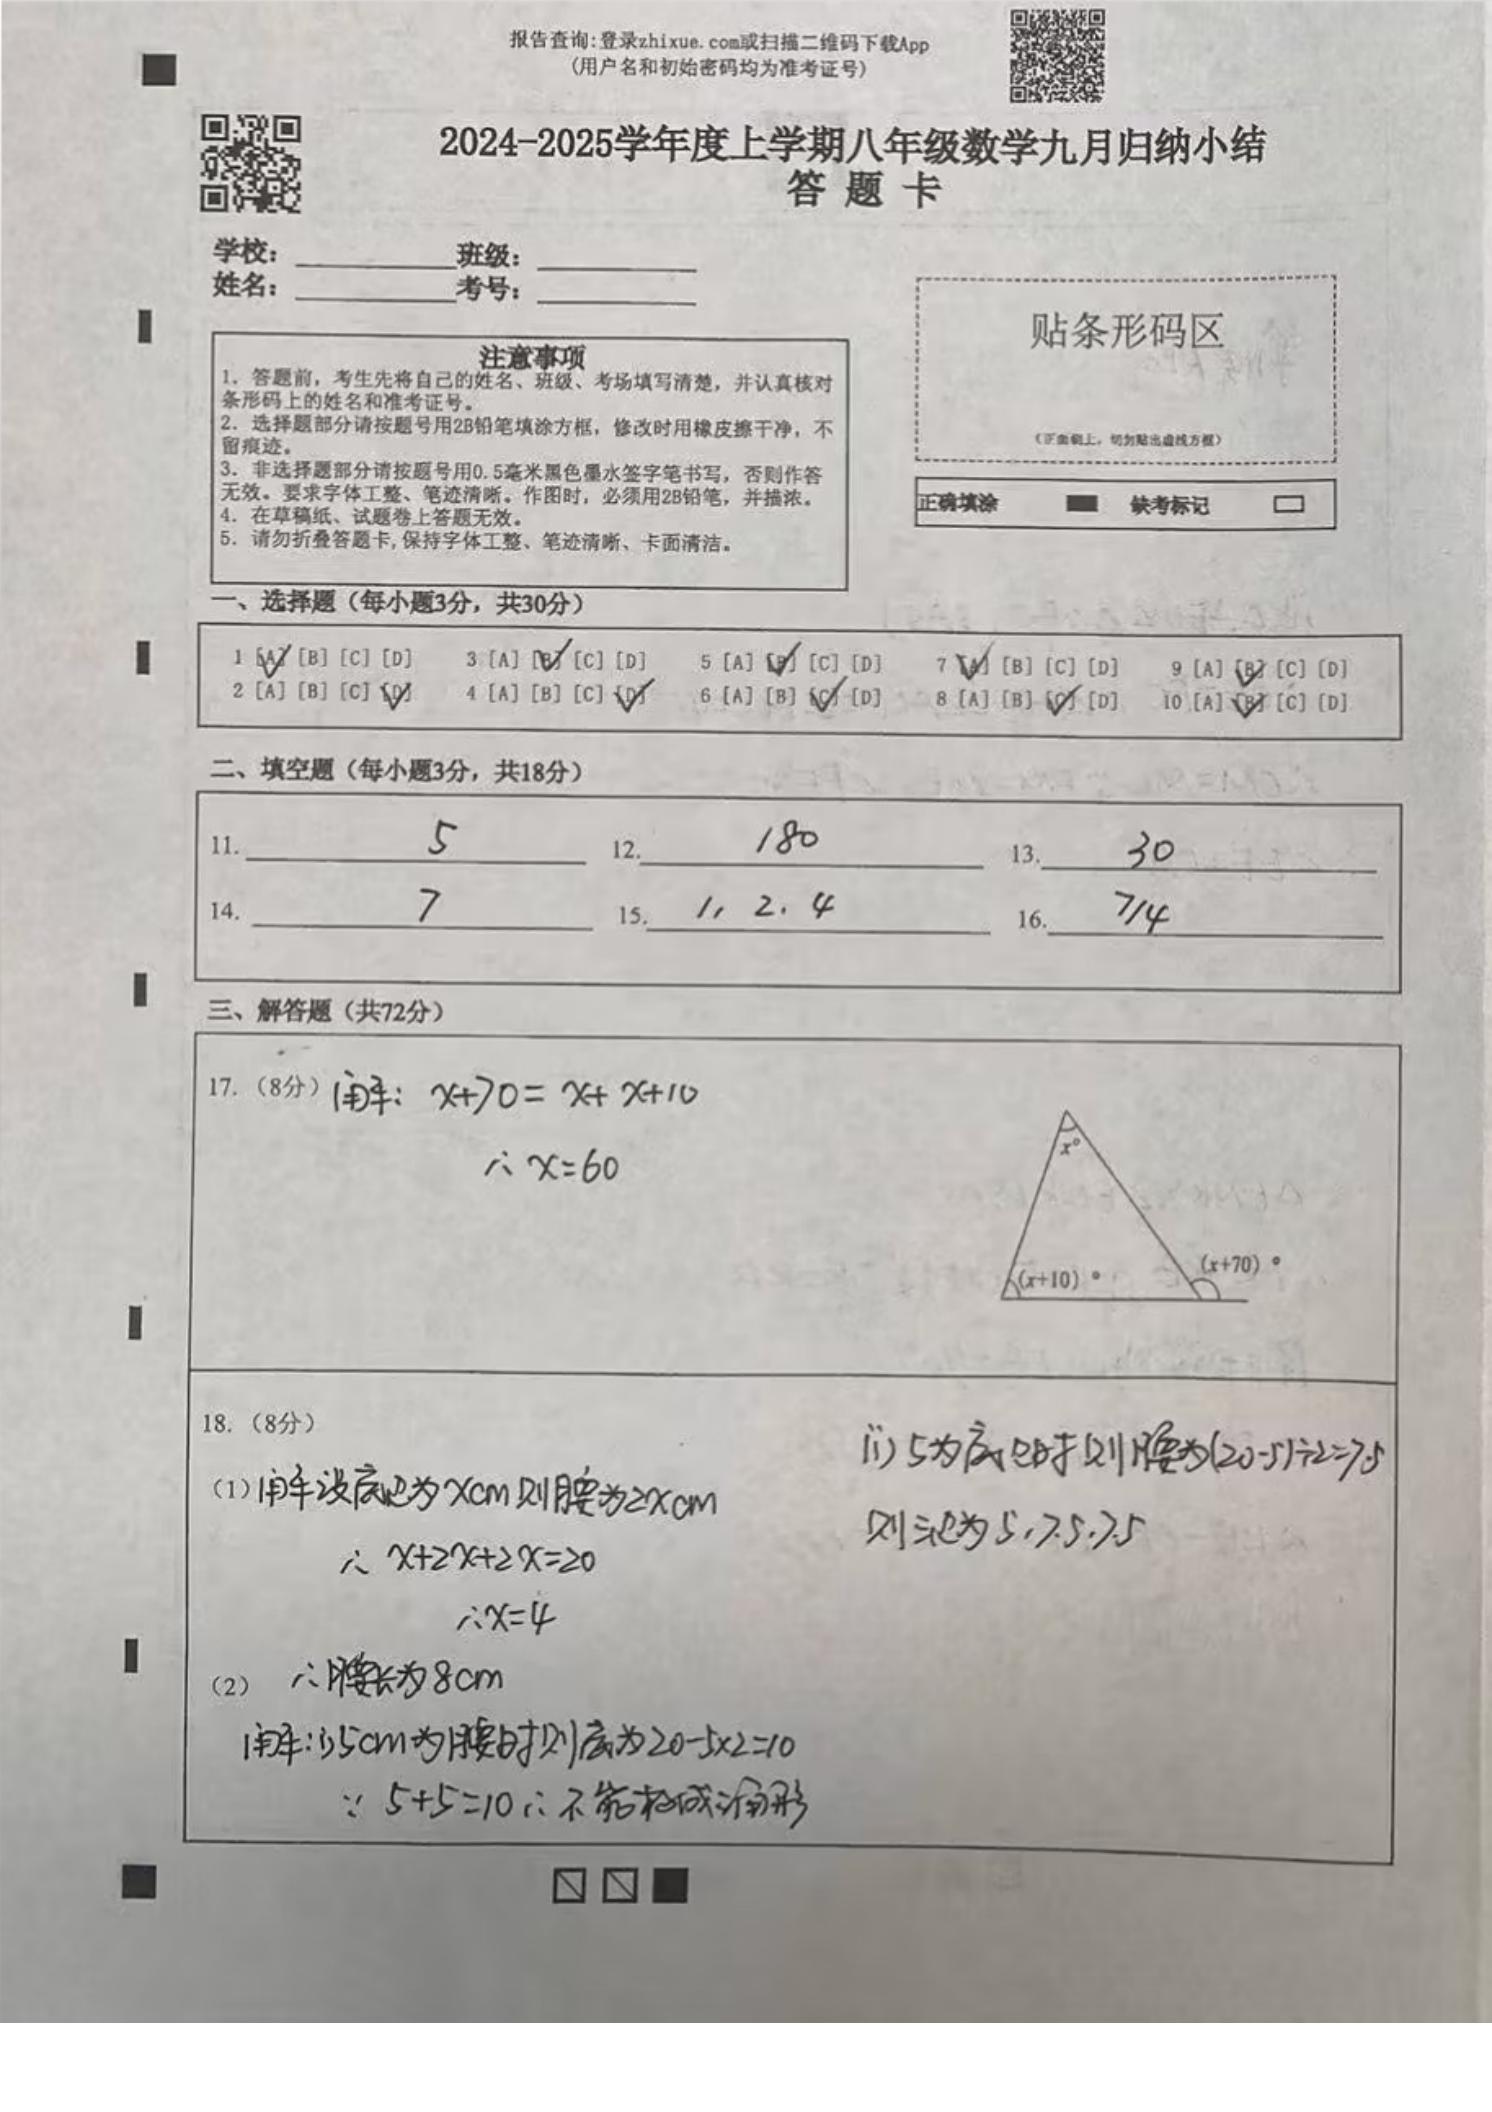 报告查询:登录zhixue.com或扫描二维码下载App
(用户名和初始密码均为准考证号)
2024-2025学年度上学期八年级数学九月归纳小结
答 题 卡
学校: 班级:
姓名: 考号:
注意事项
1. 答题前, 考生先将自己的姓名、班级、考场填写清楚, 并认真核对
条形码上的姓名和准考证号。
2. 选择题部分请按题号用2B铅笔填涂方框, 修改时用橡皮擦干净, 不
留痕迹。
3. 非选择题部分请按题号用0.5毫米黑色墨水签字笔书写, 否则作答
无效。要求字体工整、笔迹清晰。作图时, 必须用2B铅笔, 并描浓。
4. 在草稿纸、试题卷上答题无效。
5. 请勿折叠答题卡,保持字体工整、笔迹清晰、卡面清洁。
贴条形码区
(正面朝上, 切勿贴出虚线方框)
正确填涂 缺考标记
一、选择题 (每小题3分, 共30分)
1 [A] [B] [C] [D] 3 [A] [B] [C] [D] 5 [A] [B] [C] [D] 7 [A] [B] [C] [D] 9 [A] [B] [C] [D]
2 [A] [B] [C] [D] 4 [A] [B] [C] [D] 6 [A] [B] [C] [D] 8 [A] [B] [C] [D] 10 [A] [B] [C] [D]
二、填空题 (每小题3分, 共18分)
11. 5 12. 180 13. 30
14. 7 15. 1, 2. 4 16. 7/4
三、解答题 (共72分)
17. (8分) 解: x+70= x+ x+10
∴ x=60
x°
(x+10) ° (x+70) °
18. (8分)
(1) 解设底边为xcm则腰为2xcm
∴ x+2x+2x=20
∴x=4
∴腰长为8cm
(2)
解: i)5cm为腰时则底为20-5×2=10
∵ 5+5=10∴不能构成三角形
ii) 5为底边时则腰为(20-5)÷2=7.5
则三边为5,7.5,7.5